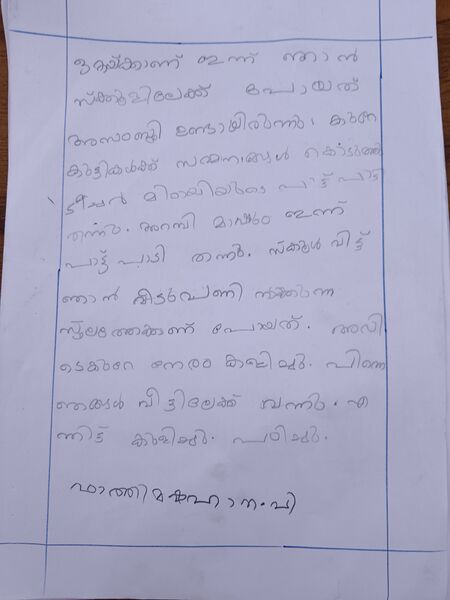 ഉരുയ്ക്കാണ് ഇന്ന് ഞാൻ
സ്ക്കൂളിലേക്ക് പോയത്
അസംബ്ലി ഉണ്ടായിരുന്നു. കുറേ
കുട്ടികൾക്ക് സമ്മനങ്ങൾ കൊടുത്തു
ടീച്ചർ മിഠായിയുടെ പാട്ട് പാടി
തന്നു. അറബി മാഷും ഇന്ന്
പാട്ട് പാടി തന്നു. സ്ക്കൂൾ വിട്ട്
ഞാൻ വീടുപണി നടക്കുന്ന
സ്ഥലത്തേക്കണ് പോയത്. അവി
ടെകുറേ നേരം കളിച്ചു. പിന്നെ
ഞങ്ങൾ വീട്ടിലേക്ക് വന്നു. എ
ന്നിട്ട് കുളിച്ചു. പഠിച്ചു.
ഫാത്തിമ പി